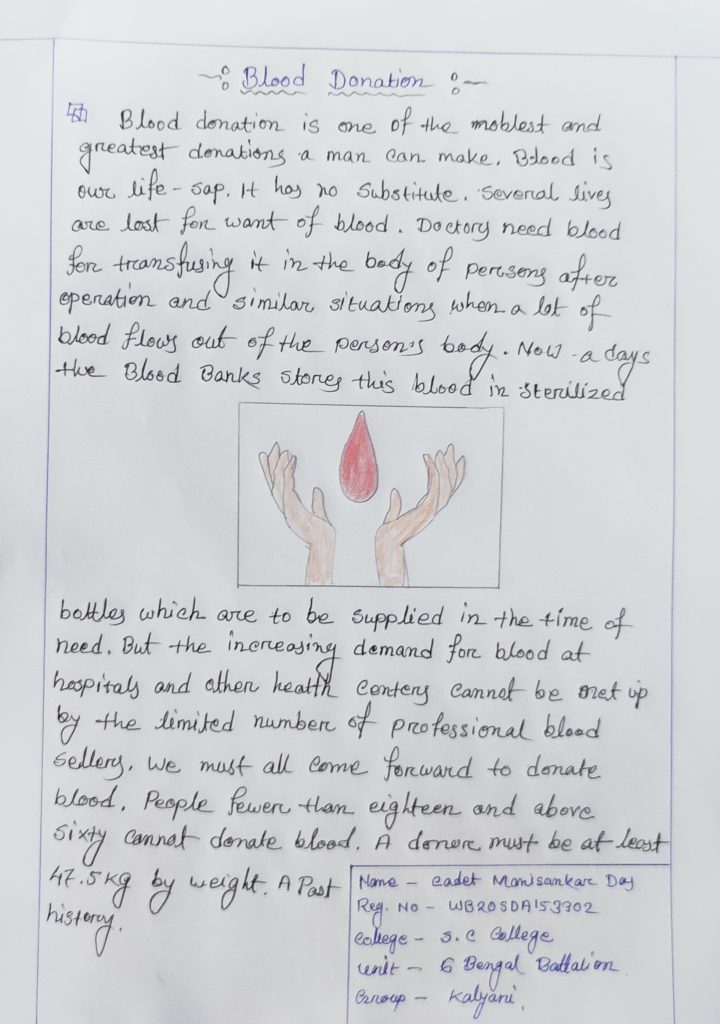 Blood Donation
Blood donation is one of the moblest and
greatest donations a man can make. Blood is
our life-sap. It has no substitute. Several lives
are lost for want of blood. Doctors need blood
for transfusing it in the body of persons after
operation and similar situations when a lot of
blood flows out of the person's body. Now-a days
the Blood Banks stores this blood in sterilized
bottles which are to be supplied in the time of
need. But the increasing demand for blood at
hospitals and other health centers cannot be met up
by the limited number of professional blood
sellers. We must all come forward to donate
blood. People fewer than eighteen and above
sixty cannot donate blood. A donor must be at least
47.5kg by weight. A Past
history.
Name - Cadet Manisankar Das
Reg. No - WB20SDA153302
College - S.C College
Unit - 6 Bengal Battalion
Group - Kalyani.